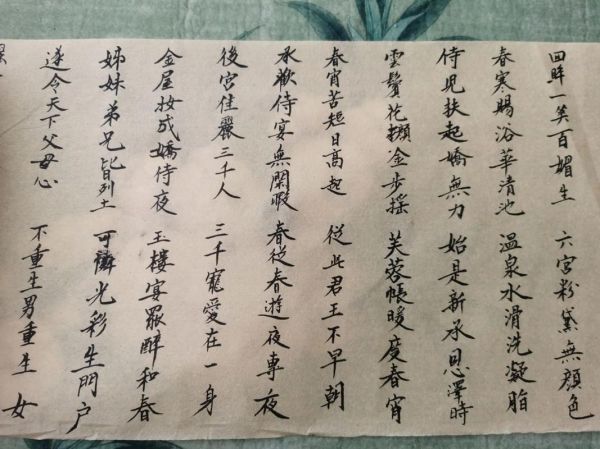 回眸一笑百媚生 六宮粉黛無顏色
春寒賜浴華清池 溫泉水滑洗凝脂
侍児扶起嬌無力 始是新承恩澤時
雲鬢花顏金步搖 芙蓉帳暖度春宵
春宵苦短日高起 從此君王不早朝
承歡侍宴無閑暇 春從春遊夜專夜
後宮佳麗三千人 三千寵愛在一身
金屋妝成嬌侍夜 玉樓宴罷醉和春
姊妹弟兄皆列土 可憐光彩生門户
遂令天下父母心 不重生男重生女